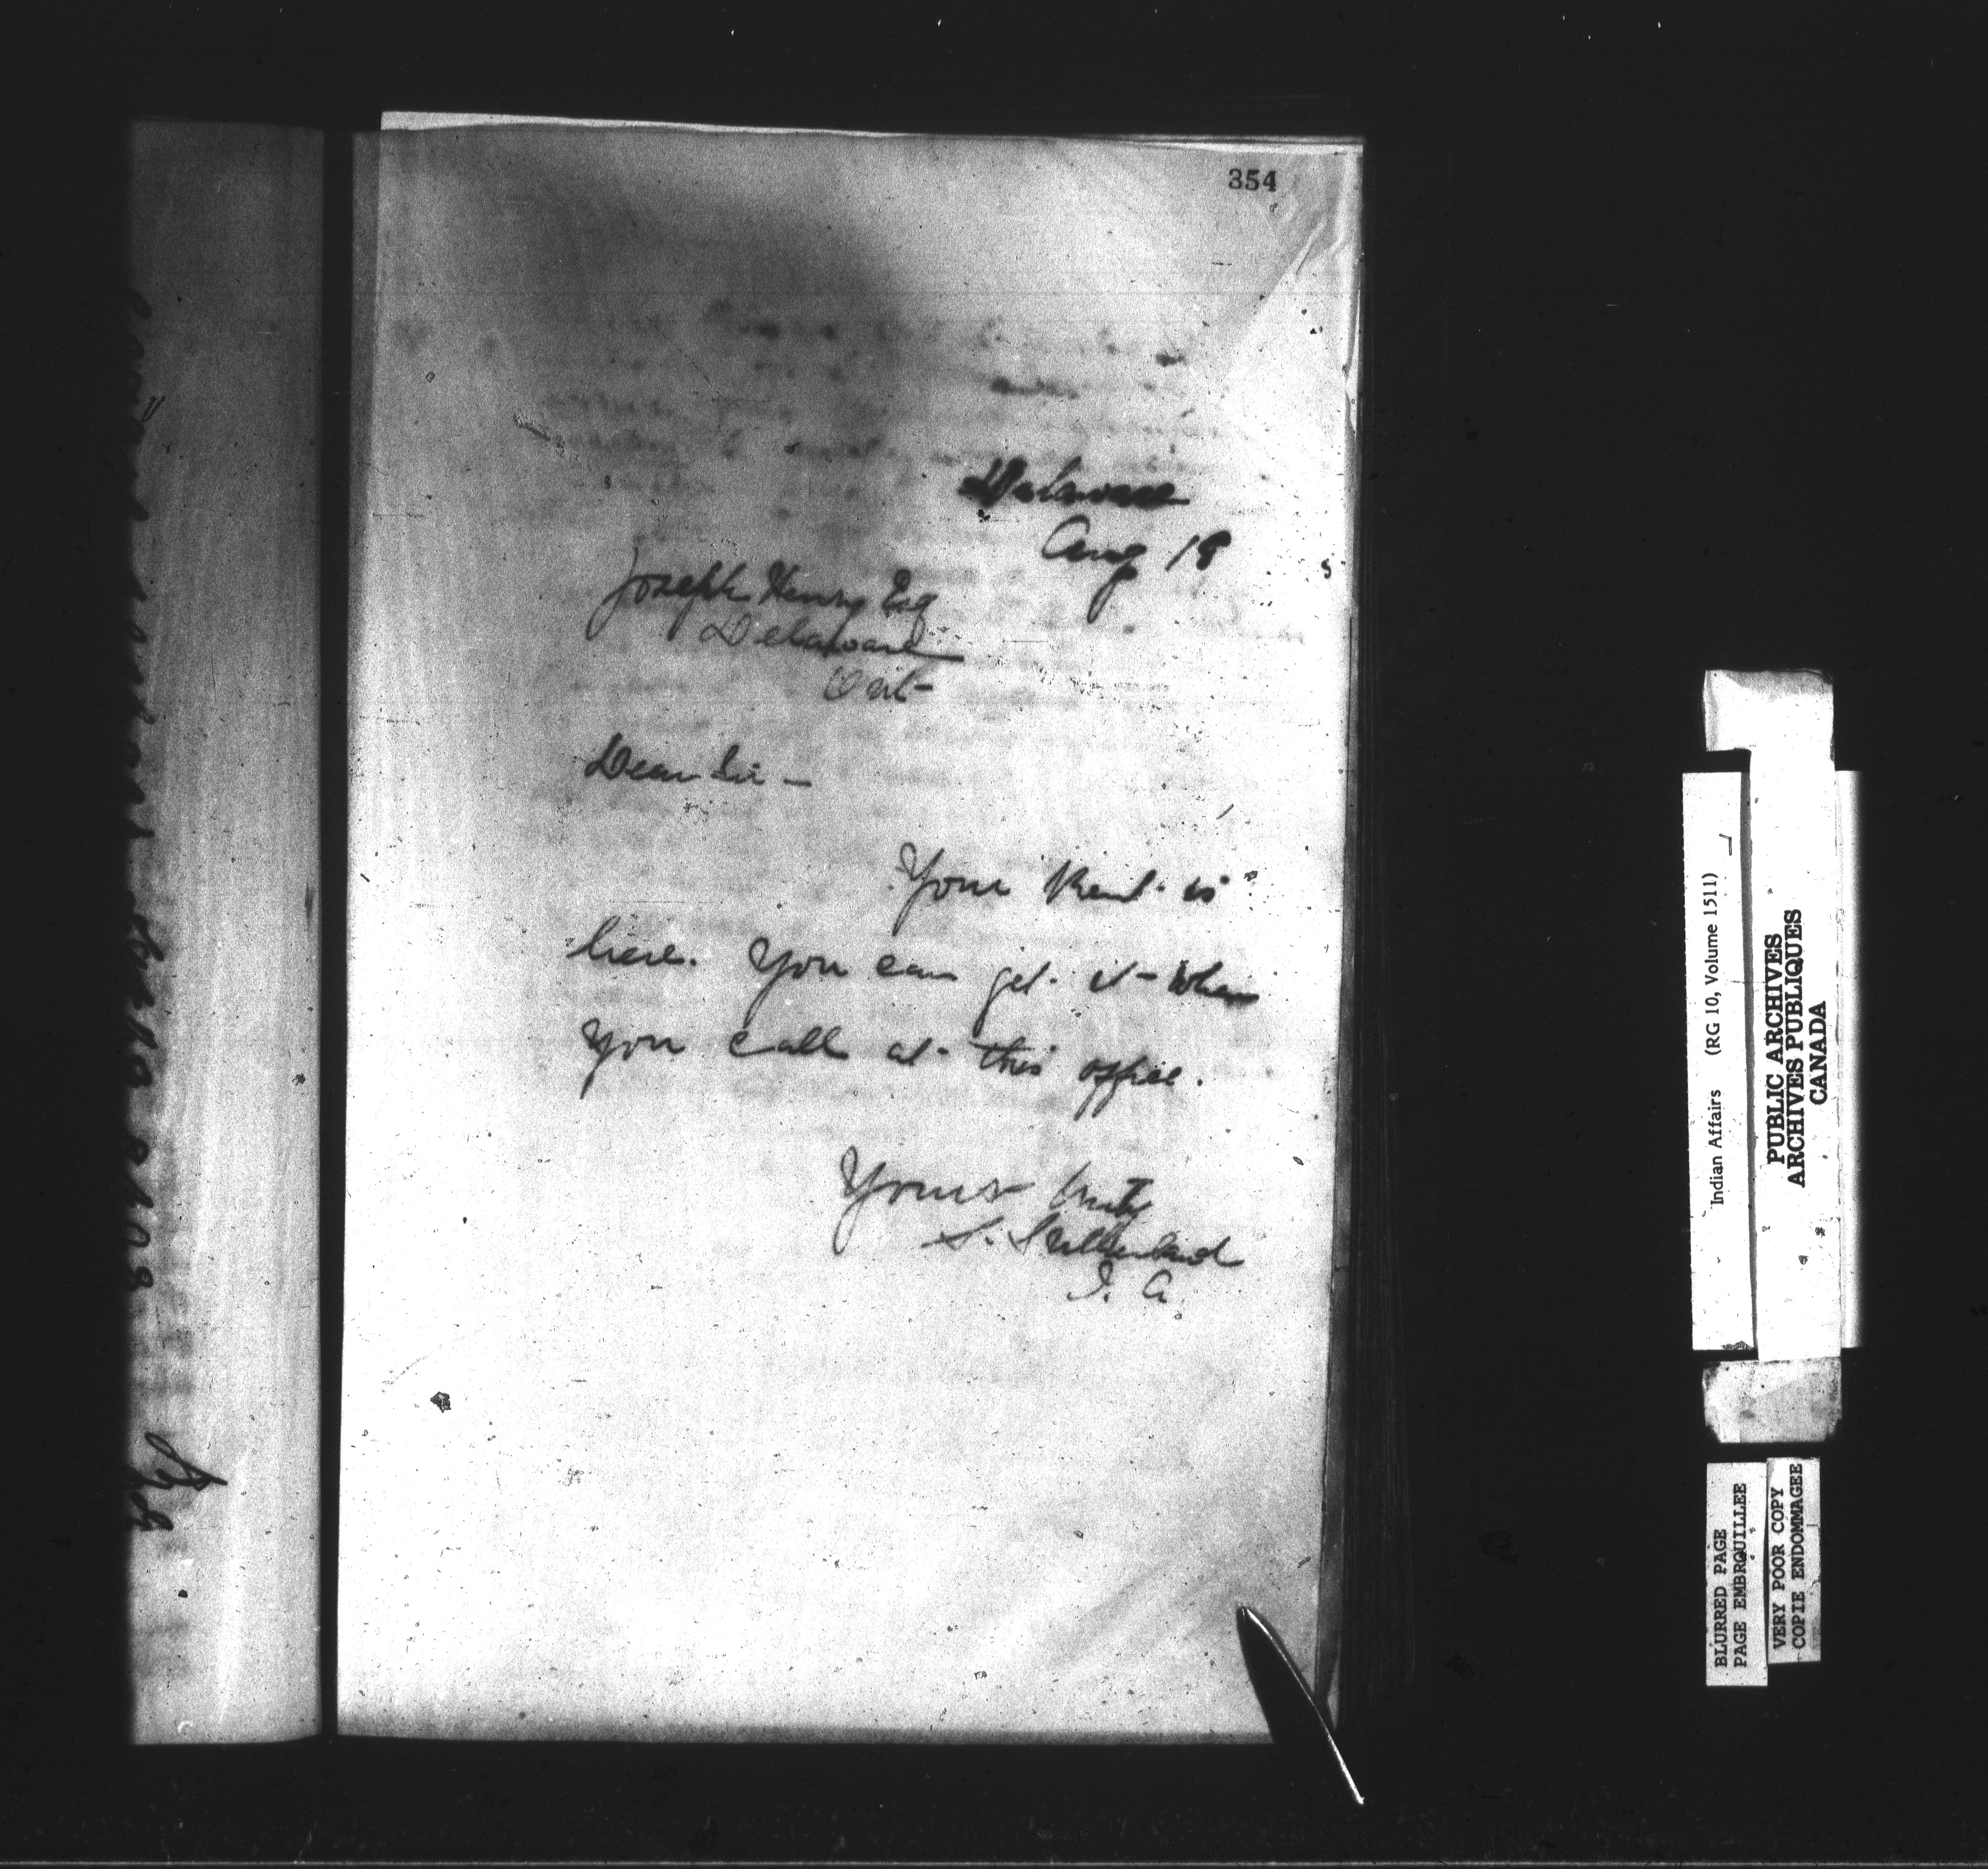 354
Delaware
Aug 18
Joseph Henry Esq
Delaware
Ont-
Dear Sir -
Your Rent is
here. You can get it - when
you call at this office.
Yours truly
S. Sutherland
I. A.
Indian Affairs (RG 10, Volume 1511)
PUBLIC ARCHIVES
ARCHIVES PUBLIQUES
CANADA
BLURRED PAGE
PAGE EMBROUILLEE
VERY POOR COPY
COPIE ENDOMMAGEE